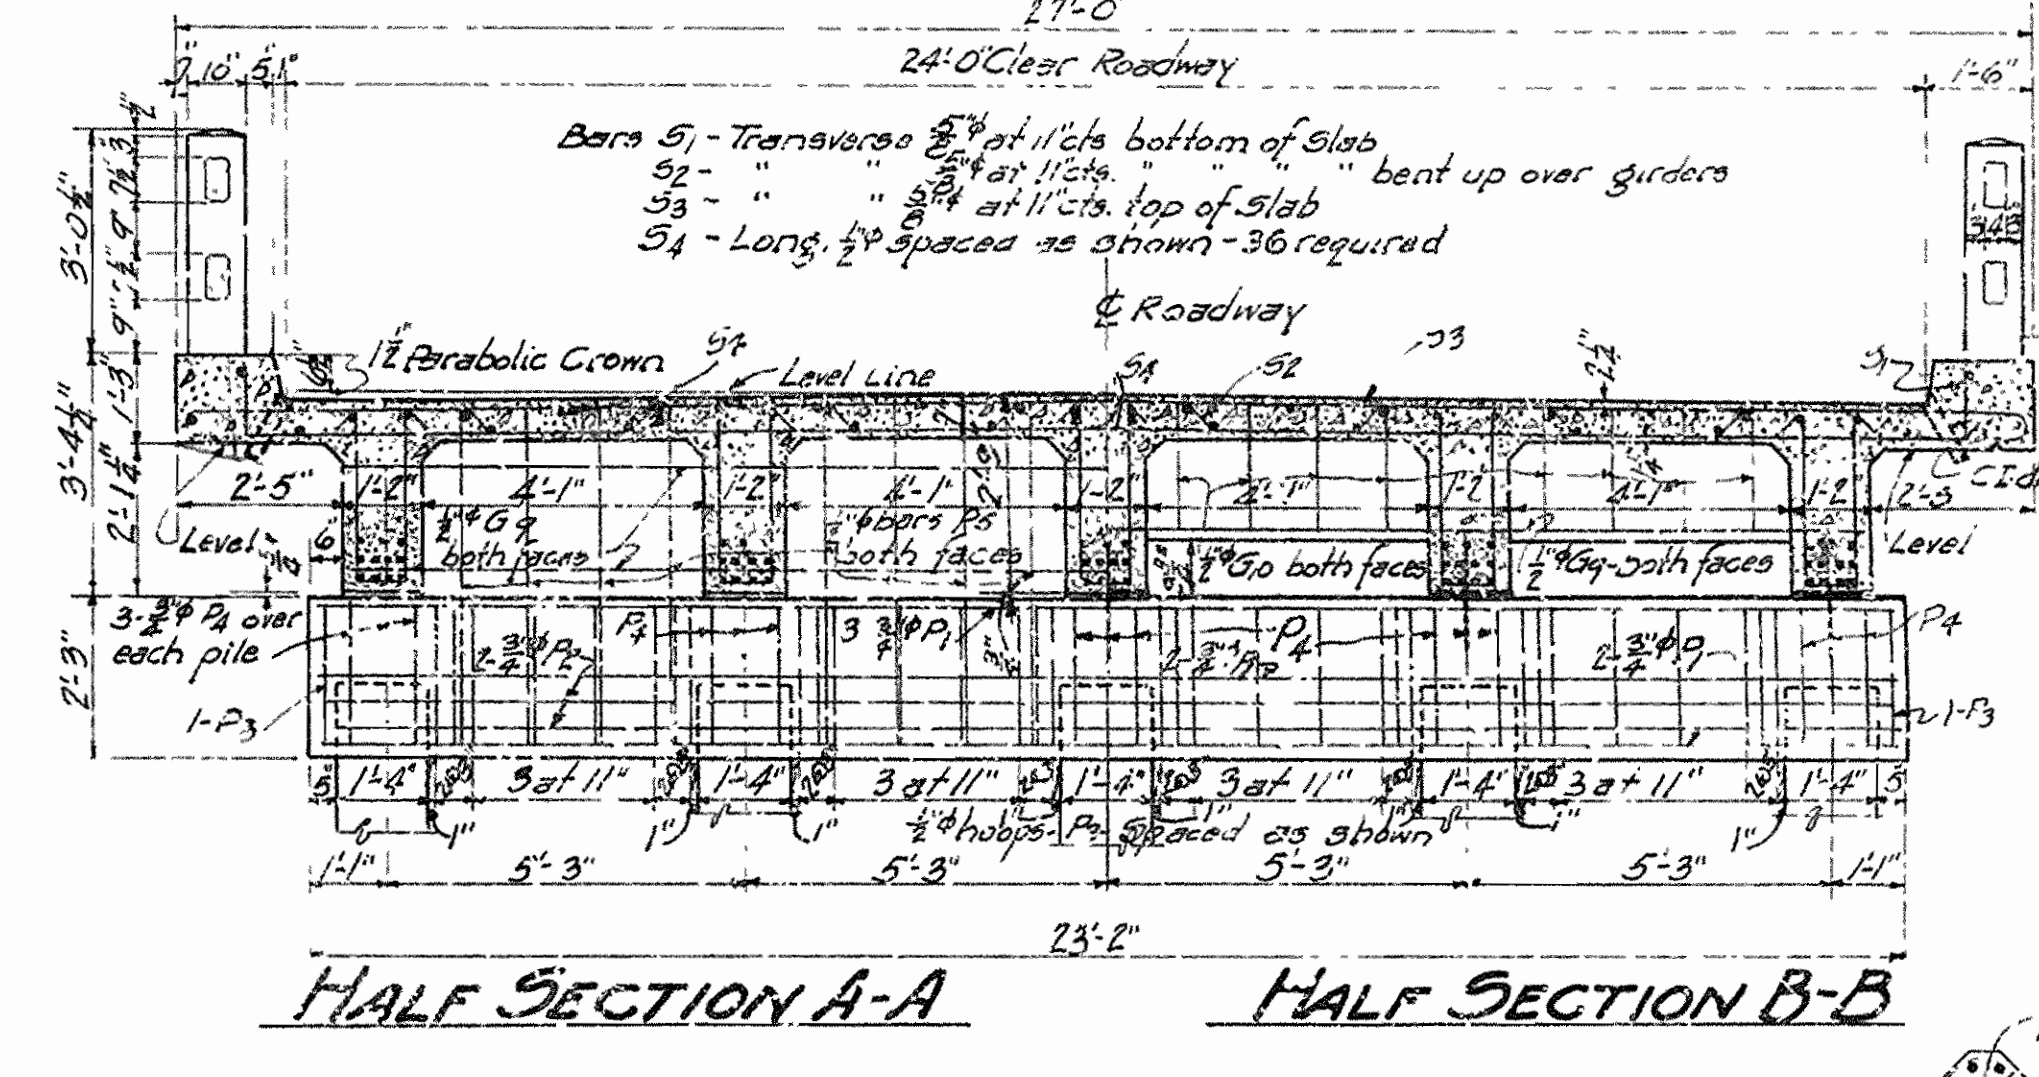 27'-0"
24'-0" Clear Roadway
1'-6"
10" 5" 1"
Bars S1 - Transverse 5/8"φ at 11" cts bottom of Slab
S2 - " " 5/8"φ at 11" cts. " " " " bent up over girders
S3 - " " 5/8"φ at 11" cts. top of Slab
S4 - Long. 1/2"φ spaced as shown - 36 required
3'-0 1/2"
℄ Roadway
1 1/2" Parabolic Crown
Level Line
S4 S2 S3
2 1/4"
S1
3'-4 1/4"
1'-3"
2'-1 1/4"
2'-5" 1'-2" 4'-1" 1'-2" 4'-1" 1'-2" 4'-1" 1'-2" 4'-1" 1'-2" 2'-5"
Level
6"
1/2"φ G9
both faces
φ bars P5
both faces
1/2"φ G10 both faces
1/2"φ G9 - both faces
Level
3 - 3/4"φ P4 over
each pile
2 - 3/4"φ P2
P4
3 3/4"φ P1
P4
P4
2'-3"
1-P3
1-P3
5" 1'-4" 3 at 11" 1'-4" 3 at 11" 1'-4" 3 at 11" 1'-4" 3 at 11" 1'-4" 5"
1" 1" 1" 1" 1" 1"
1/2"φ hoops - spaced as shown
1'-1" 5'-3" 5'-3" 5'-3" 5'-3" 1'-1"
23'-2"
HALF SECTION A-A
HALF SECTION B-B